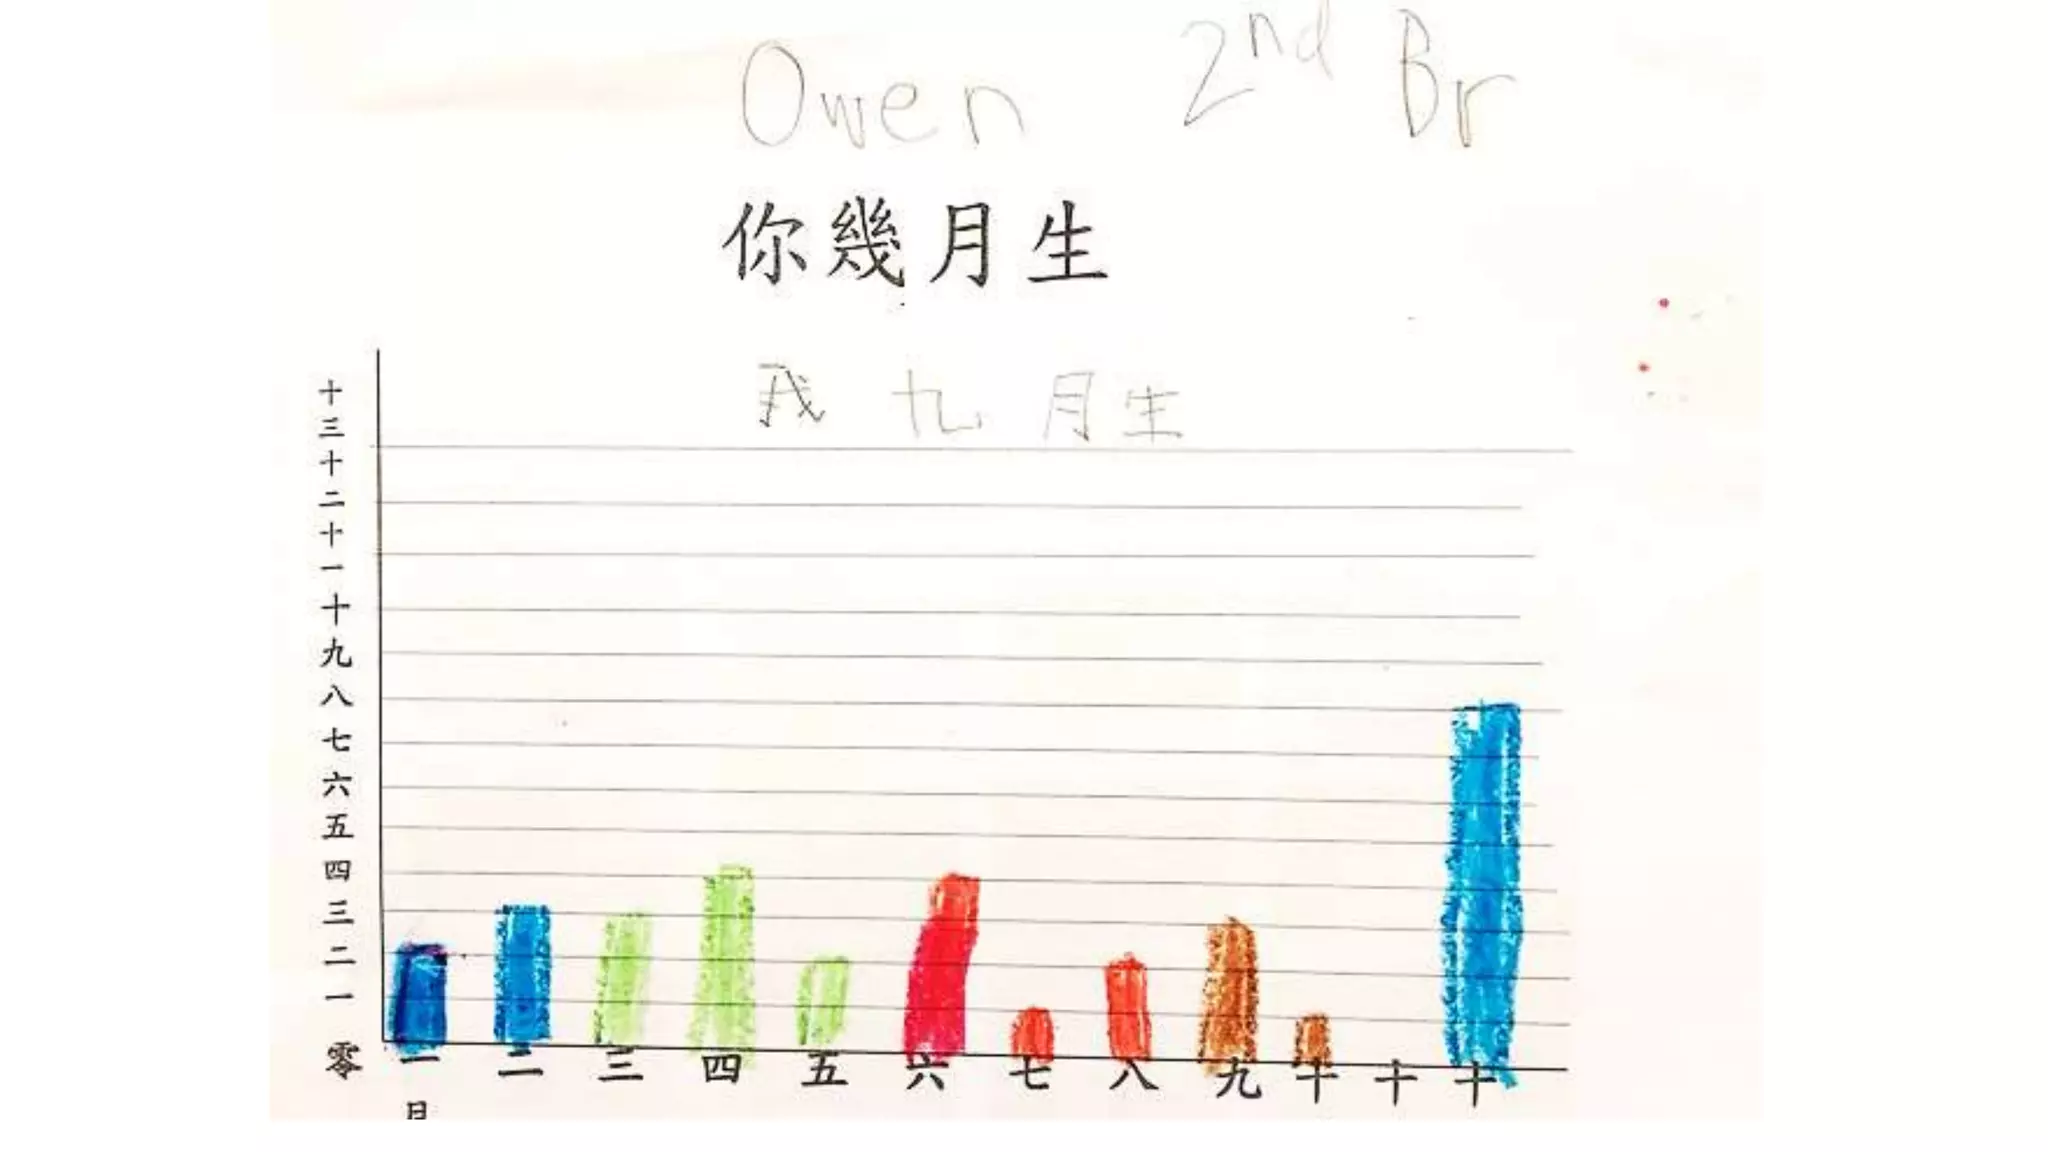 Owen 2nd Br
你幾月生
我 九 月 生
十三
十二
十一
十
九
八
七
六
五
四
三
二
一
零
一 二 三 四 五 六 七 八 九 十 十 十
月